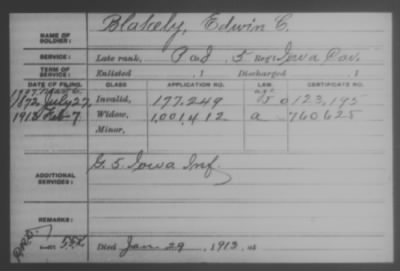 NAME OF SOLDIER: Blakely, Edwin C.
SERVICE: Late rank, P Co I, 5 Reg't Iowa Cav.
TERM OF SERVICE: Enlisted , 1 Discharged , 1
DATE OF FILING. CLASS APPLICATION NO. LAW CERTIFICATE NO.
1872, July 27 Invalid, 177.249 0123,195
1913 Feb-7 Widow, 1,001,412 a 760625
Minor,
ADDITIONAL SERVICES: G. 5 Iowa Inf.
REMARKS:
Died Jan 29, 1913, at